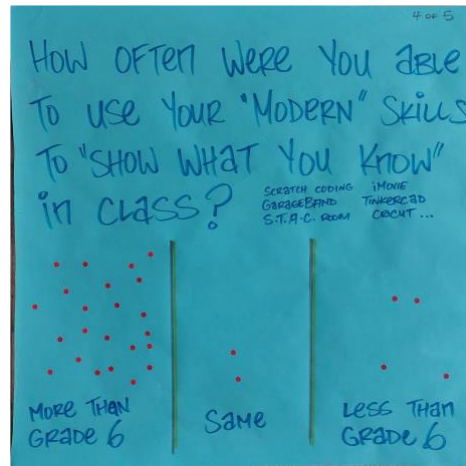 4 OF 5
HOW OFTEN WERE YOU ABLE
TO USE YOUR "MODERN" SKILLS
TO "SHOW WHAT YOU KNOW"
in CLASS?
SCRATCH CODING iMOVIE
GARAGEBAND TINKERCAD
S.T.A.C. ROOM CRICUT ...
MORE THAN GRADE 6
SAME
LESS THAN GRADE 6